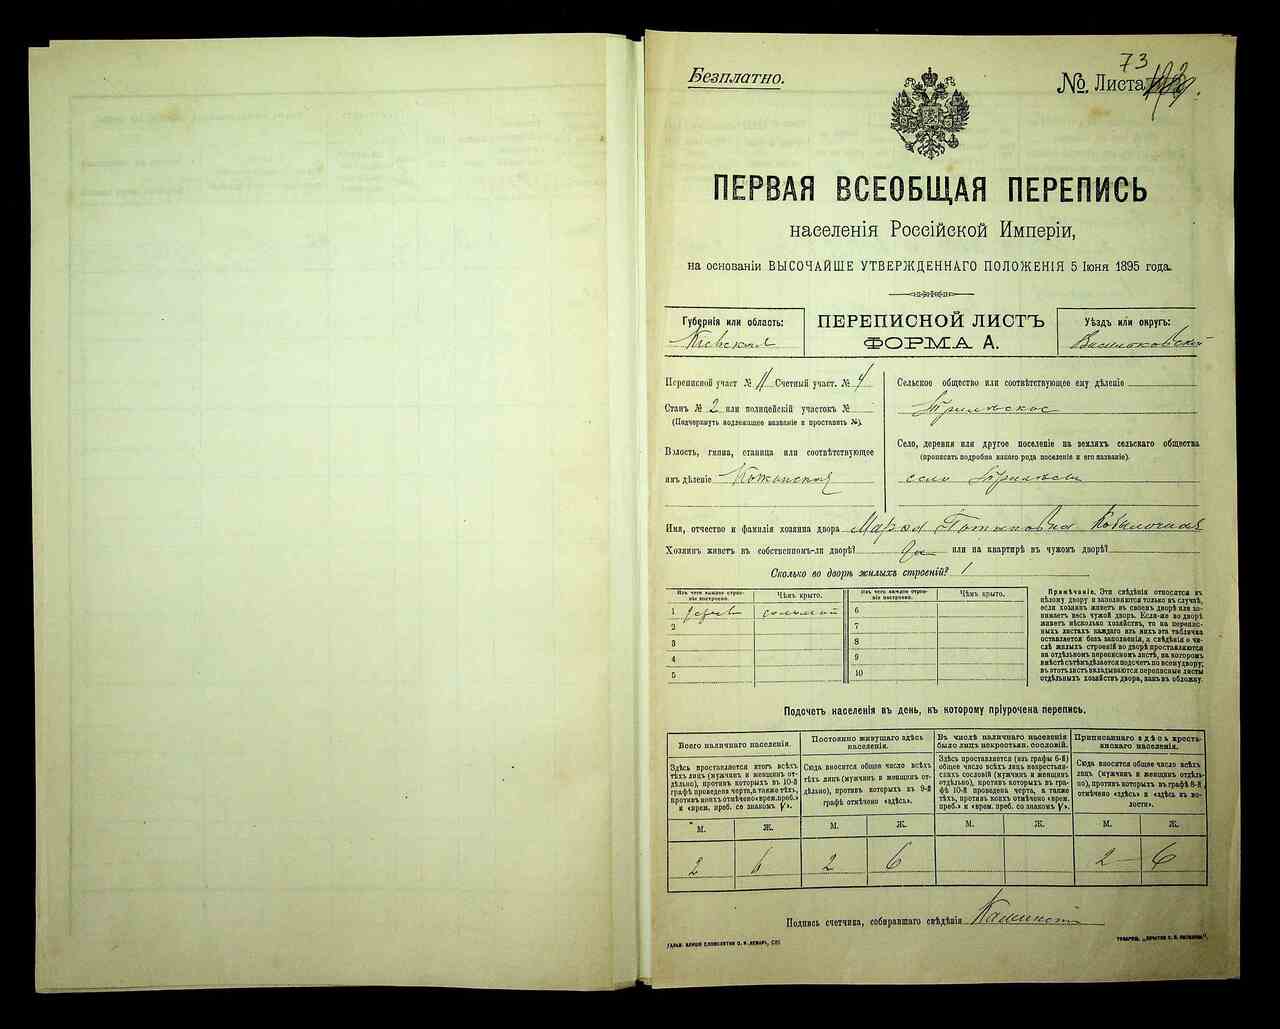 Безплатно.
73
№. Листа
ПЕРВАЯ ВСЕОБЩАЯ ПЕРЕПИСЬ
населенія Россійской Имперіи,
на основаніи ВЫСОЧАЙШЕ УТВЕРЖДЕННАГО ПОЛОЖЕНІЯ 5 Іюня 1895 года.
Губернія или область:
Кіевская
ПЕРЕПИСНОЙ ЛИСТЪ
ФОРМА А.
Уѣздъ или округъ:
Васильковскій
Переписной участ № 11 Счетный участ. № 4
Станъ № 2 или полицейскій участокъ №
(Подчеркнуть надлежащее названіе и проставить №).
Волость, гмина, станица или соотвѣтствующее
имъ дѣленіе Кожанская
Сельское общество или соотвѣтствующее ему дѣленіе
Трилѣское
Село, деревня или другое поселеніе на земляхъ сельскаго общества
(прописать подробно какого рода поселеніе и его названіе).
село Трилѣсы
Имя, отчество и фамилія хозяина двора
Хозяинъ живетъ въ собственномъ-ли дворѣ? да или на квартирѣ въ чужомъ дворѣ?
Сколько во дворѣ жилыхъ строеній? 1
Изъ чего каждое строеніе построено.
Чѣмъ крыто.
Изъ чего каждое строеніе построено.
Чѣмъ крыто.
1 дерев соломой 6
2 7
3 8
4 9
5 10
Примѣчаніе. Эти свѣдѣнія относятся къ
цѣлому двору и заполняются только въ случаѣ,
если хозяинъ живетъ въ своемъ дворѣ или занимаетъ
весь чужой дворъ. Если-же во дворѣ
живетъ нѣсколько хозяйствъ, то на переписныхъ
листахъ каждаго изъ нихъ эта табличка
оставляется безъ заполненія, а свѣдѣнія о числѣ
жилыхъ строеній во дворѣ проставляются
на отдѣльномъ переписномъ листѣ, на которомъ
вмѣстѣ съ тѣмъ дѣлается подсчетъ по всему двору;
въ этотъ листъ вкладываются переписные листы
отдѣльныхъ хозяйствъ двора, какъ въ обложку.
Подсчетъ населенія въ день, къ которому пріурочена перепись.
Всего наличнаго населенія.
Здѣсь проставляется итогъ всѣхъ
тѣхъ лицъ (мужчинъ и женщинъ отдѣльно),
противъ которыхъ въ 10-й
графѣ проведена черта, а также тѣхъ,
противъ коихъ отмѣчено «врем. преб.»
и «врем. преб. со знакомъ V».
Постоянно живущаго здѣсь
населенія.
Сюда вносится общее число всѣхъ
тѣхъ лицъ (мужчинъ и женщинъ отдѣльно),
противъ которыхъ въ 9-й
графѣ отмѣчено «здѣсь».
Въ числѣ наличнаго населенія
было лицъ некрестьян. сословій.
Здѣсь проставляется (изъ графы 6-й)
общее число всѣхъ лицъ некрестьянскихъ
сословій (мужчинъ и женщинъ
отдѣльно), противъ которыхъ въ графѣ
10-й проведена черта, а также
тѣхъ, противъ коихъ отмѣчено «врем.
преб.» и «врем. преб. со знакомъ V».
Приписаннаго здѣсь крестьянскаго
населенія.
Сюда вносится общее число всѣхъ
лицъ (мужчинъ и женщинъ отдѣльно),
противъ которыхъ въ графѣ 8-й
отмѣчено «здѣсь» и «здѣсь въ волости».
М. Ж. М. Ж. М. Ж. М. Ж.
2 6 2 6 2 6
Подпись счетчика, собиравшаго свѣдѣнія Каминскій